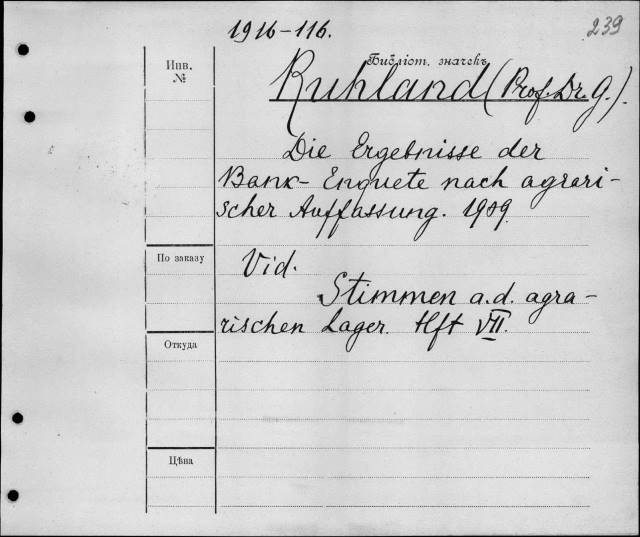 1916-116.
239
Инв.
№
Библіот. значекъ
Ruhland (Prof. Dr. G.).
Die Ergebnisse der
Bank-Enquete nach agrari-
scher Auffassung. 1909.
По заказу
Vid.
Stimmen a.d. agra-
rischen Lager. Hft VII.
Откуда
Цѣна